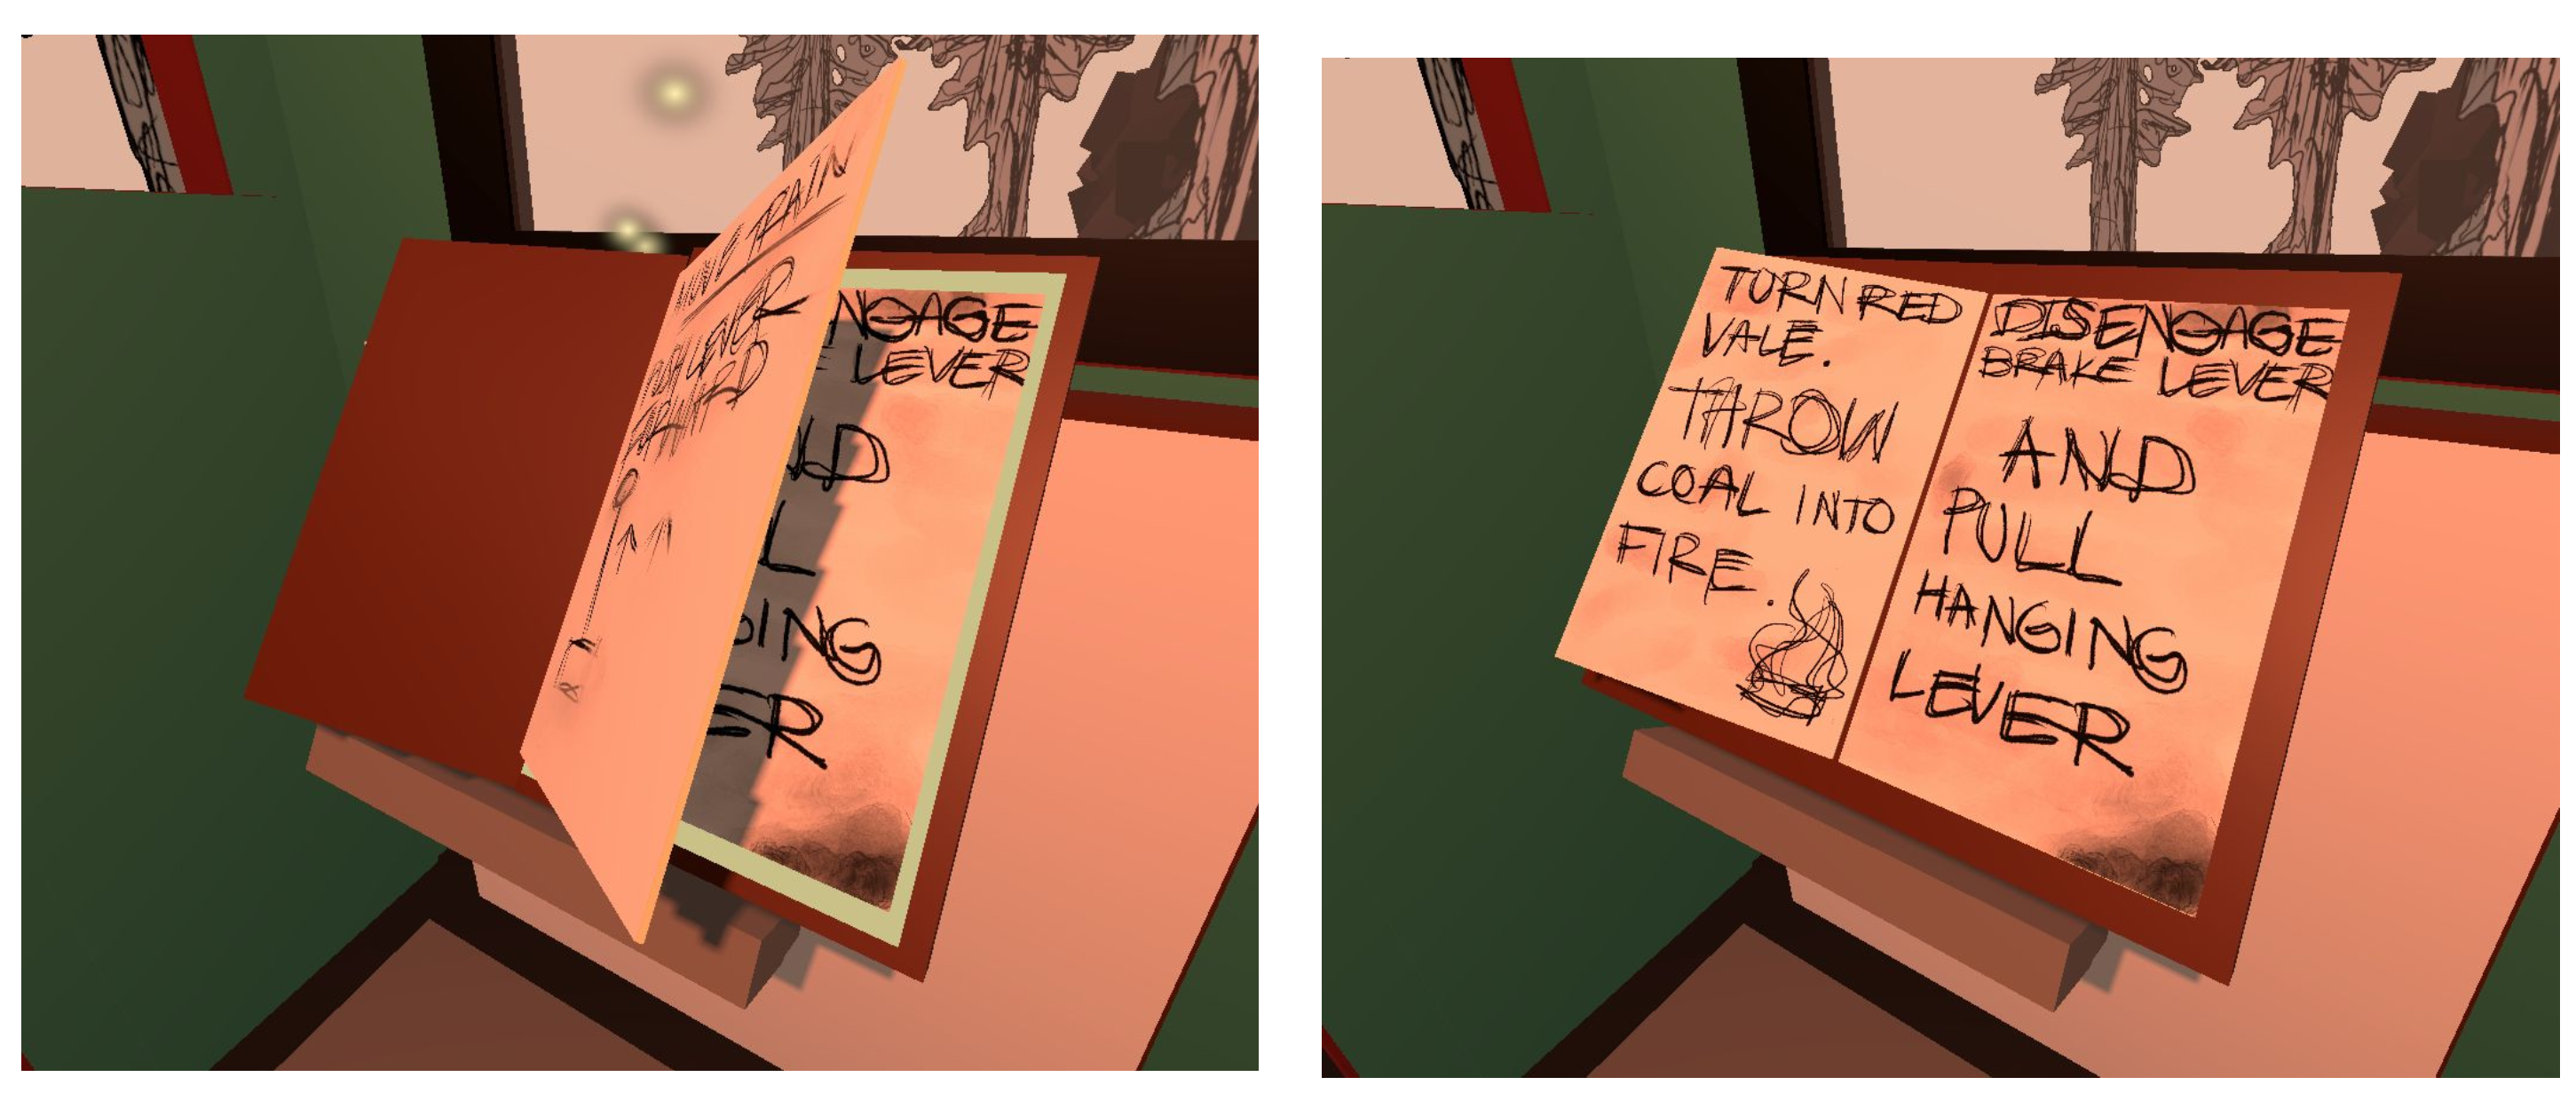 MOVE TRAIN
PUSH LEVER
FORWARD
NGAGE
E LEVER
ND
L
GING
ER
TURN RED
VALE.
THROW
COAL INTO
FIRE.
DISENGAGE
BRAKE LEVER
AND
PULL
HANGING
LEVER